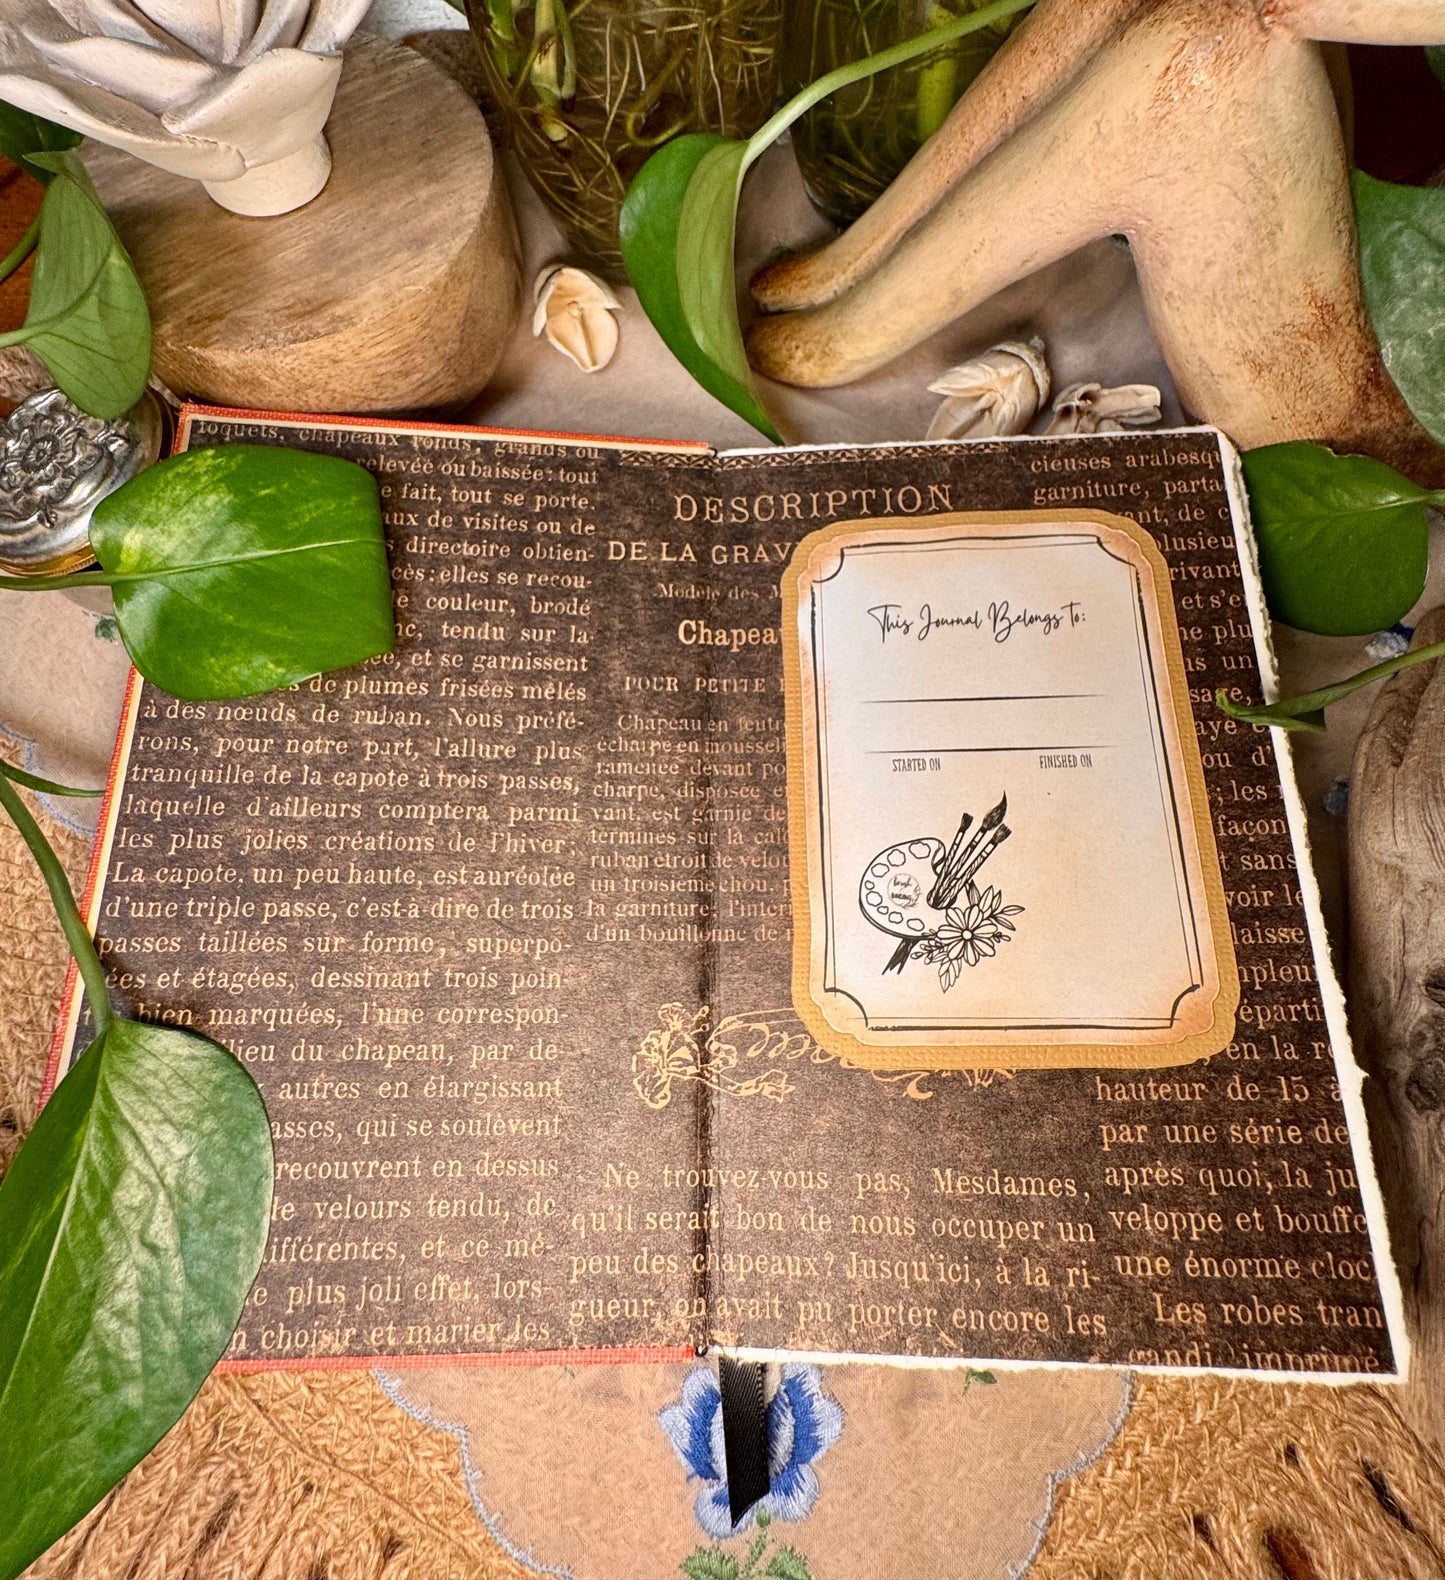 toquets, chapeaux ronds, grands ou
relevée ou baissée: tout
fait, tout se porte.
de visites ou de
directoire obtien-
cès: elles se recou-
couleur, brodé
tendu sur la-
et se garnissent
de plumes frisées mêlés
à des nœuds de ruban. Nous préfé-
rons, pour notre part, l'allure plus
tranquille de la capote à trois passes,
laquelle d'ailleurs comptera parmi
les plus jolies créations de l'hiver.
La capote, un peu haute, est auréolée
d'une triple passe, c'est-à-dire de trois
passes taillées sur forme, superpo-
ées et étagées, dessinant trois poin-
bien marquées, l'une correspon-
lieu du chapeau, par de-
autres en élargissant
asses, qui se soulèvent
recouvrent en dessus
velours tendu, de
ifférentes, et ce mê-
plus joli effet, lors-
choisir et marier les
DESCRIPTION
DE LA GRAV
Modèle des
Chapea
POUR PETITE
Chapeau en feutr
écharpe en mousseli
ramenée devant po
charpe, disposée e
vant, est garnie de
termines sur la cal
ruban étroit de velou
un troisième chou, p
la garniture; l'inter
d'un bouillonné de
Ne trouvez-vous pas, Mesdames,
qu'il serait bon de nous occuper un
peu des chapeaux? Jusqu'ici, à la ri-
gueur, on avait pu porter encore les
This Journal Belongs to:
STARTED ON FINISHED ON
cieuses arabesqu
garniture, parta
ant, de c
lusieu
rivant
et s'e
ne plu
ns un
sage,
ou d'
; les
façon
t sans
voir le
laisse
mpleu
éparti
en la r
hauteur de 15 à
par une série de
après quoi, la ju
veloppe et bouffe
une énorme cloc
Les robes tran
grandi imprimé